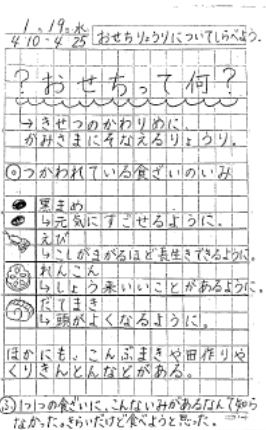 1 19 水
4 10 - 4 25 おせちりょうりについてしらべよう.
?おせちって何?
↳きせつのかわりめに、
かみさまにそなえるりょうり。
◎つかわれている食ざいのいみ
黒まめ
↳元気にすごせるように.
えび
↳こしがまがるほど長生きできるように。
れんこん
↳しょう来いいことがあるように。
だてまき
↳頭がよくなるように。
ほかにも、こんぶまきや田作りや
くりきんとんなどがある。
ふ 1つ1つの食ざいに、こんないみがあるなんて知ら
なかった。きらいだけど食べようと思った。